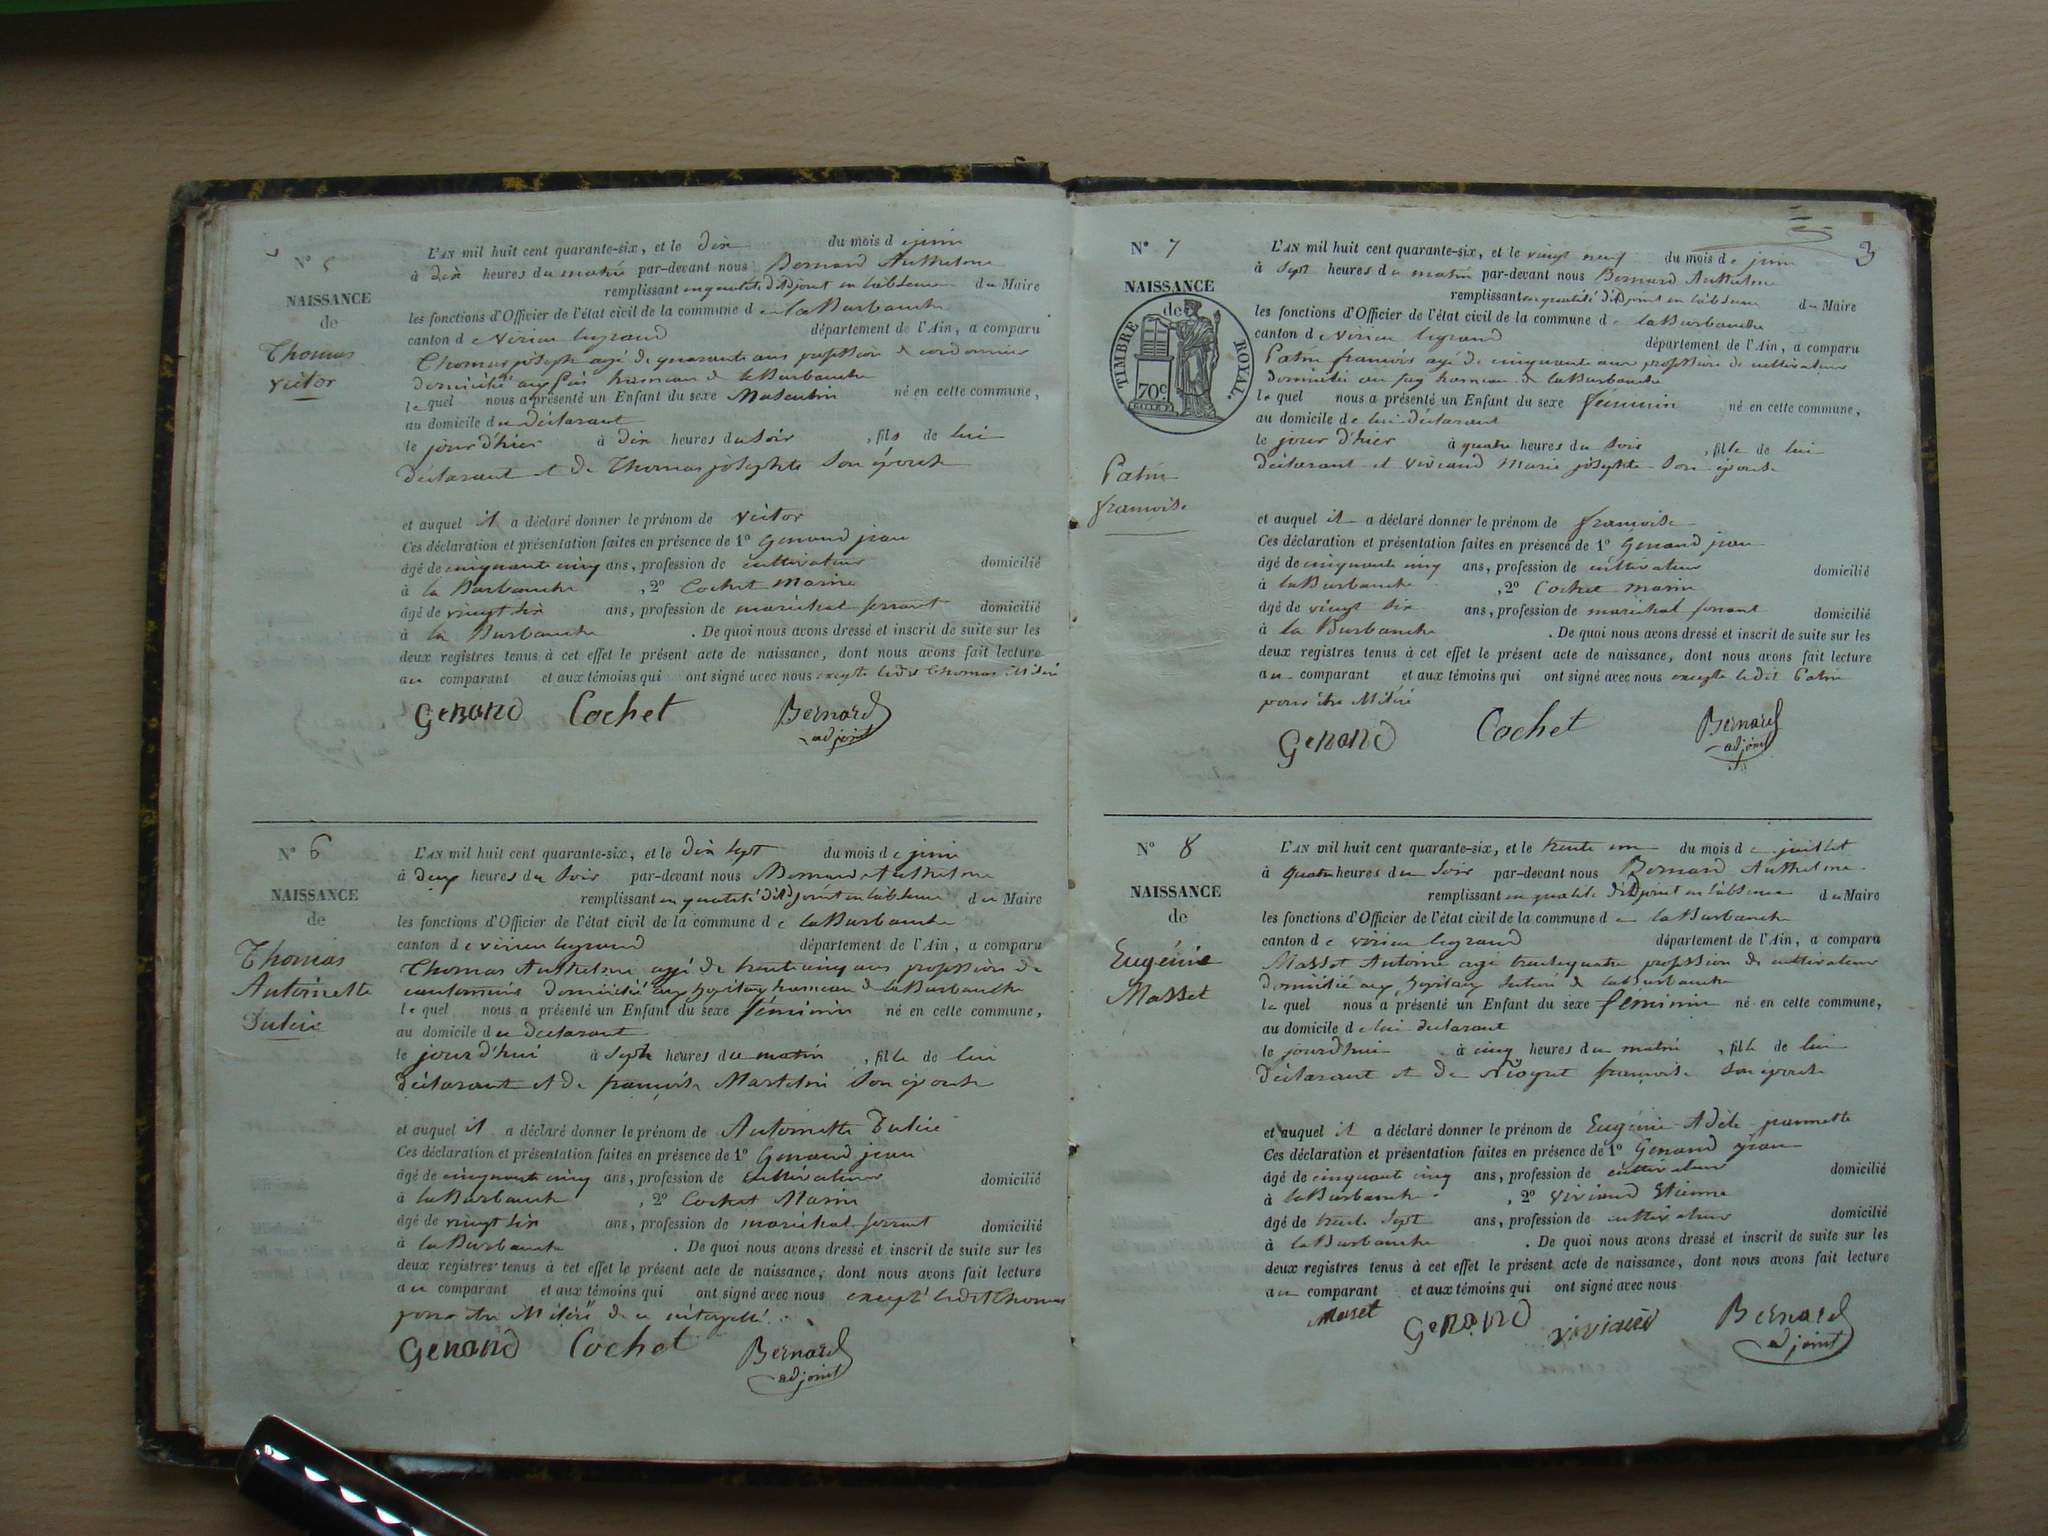 N° 5
NAISSANCE
de
Thomas
victor
L'AN mil huit cent quarante-six, et le dix du mois de juin
à dix heures du matin par-devant nous Bernard Anthelme
remplissant en qualité d'Adjoint en l'absence du Maire
les fonctions d'Officier de l'état civil de la commune de laBurbanche
canton de Virieu legrand département de l'Ain, a comparu
Thomas joseph agé de quarante ans profession de cordonnier
domicilié hameau de laBurbanche
lequel nous a présenté un Enfant du sexe Masculin né en cette commune,
au domicile du déclarant
le jour d'hier à dix heures du soir, fils de lui
déclarant et de Thomas josephte son épouse
et auquel il a déclaré donner le prénom de victor
Ces déclaration et présentation faites en présence de 1° Genand jean
âgé de cinquante cinq ans, profession de cultivateur domicilié
à la Burbanche, 2° Cochet Marin
âgé de vingt six ans, profession de maréchal ferrant domicilié
à la Burbanche. De quoi nous avons dressé et inscrit de suite sur les
deux registres tenus à cet effet le présent acte de naissance, dont nous avons fait lecture
au comparant et aux témoins qui ont signé avec nous excepté ledit Thomas
Genand Cochet Bernard
adjoint
N° 6
NAISSANCE
de
Thomas
Antoinette
L'AN mil huit cent quarante-six, et le dix sept du mois de juin
à deux heures du soir par-devant nous Bernard Anthelme
remplissant en qualité d'Adjoint en l'absence du Maire
les fonctions d'Officier de l'état civil de la commune de laBurbanche
canton de virieu legrand département de l'Ain, a comparu
Thomas Anthelme agé de trente cinq ans profession de
cantonnier domicilié aux hopitaux hameau de laBurbanche
lequel nous a présenté un Enfant du sexe féminin né en cette commune,
au domicile du déclarant
le jourd'hui à sept heures du matin, fille de lui
déclarant et de françoise Martelin son épouse
et auquel il a déclaré donner le prénom de Antoinette
Ces déclaration et présentation faites en présence de 1° Genand jean
âgé de cinquante cinq ans, profession de cultivateur domicilié
à laBurbanche, 2° Cochet Marin
âgé de vingt six ans, profession de maréchal ferrant domicilié
à laBurbanche. De quoi nous avons dressé et inscrit de suite sur les
deux registres tenus à cet effet le présent acte de naissance, dont nous avons fait lecture
au comparant et aux témoins qui ont signé avec nous excepté ledit Thomas
pour être illitéré de ce
Genand Cochet Bernard
adjoint
3
N° 7
NAISSANCE
de
TIMBRE ROYAL.
70c
Patin
françoise
L'AN mil huit cent quarante-six, et le vingt neuf du mois de juin
à sept heures du matin par-devant nous Bernard Anthelme
remplissant en qualité d'Adjoint en l'absence du Maire
les fonctions d'Officier de l'état civil de la commune de laBurbanche
canton de Virieu legrand département de l'Ain, a comparu
Patin françois agé de cinquante ans profession de cultivateur
domicilié au fay hameau de laBurbanche
lequel nous a présenté un Enfant du sexe féminin né en cette commune,
au domicile de lui déclarant
le jour d'hier à quatre heures du soir, fille de lui
déclarant et viviand Marie josephte son épouse
et auquel il a déclaré donner le prénom de françoise
Ces déclaration et présentation faites en présence de 1° Genand jean
âgé de cinquante cinq ans, profession de cultivateur domicilié
à laBurbanche, 2° Cochet marin
âgé de vingt six ans, profession de maréchal ferrant domicilié
à la Burbanche. De quoi nous avons dressé et inscrit de suite sur les
deux registres tenus à cet effet le présent acte de naissance, dont nous avons fait lecture
au comparant et aux témoins qui ont signé avec nous excepté ledit Patin
pour être illitéré
Genand Cochet Bernard
adjoint
N° 8
NAISSANCE
de
Eugénie
Masset
L'AN mil huit cent quarante-six, et le trente un du mois de juillet
à quatre heures du soir par-devant nous Bernard Anthelme
remplissant en qualité d'Adjoint en l'absence du Maire
les fonctions d'Officier de l'état civil de la commune de laBurbanche
canton de virieu legrand département de l'Ain, a comparu
Masset Antoine agé trente quatre profession de cultivateur
domicilié aux hopitaux section de laBurbanche
lequel nous a présenté un Enfant du sexe féminin né en cette commune,
au domicile de lui déclarant
le jourd'hui à cinq heures du matin, fille de lui
déclarant et de Nioguet françoise son épouse
et auquel il a déclaré donner le prénom de Eugénie Adèle jeannette
Ces déclaration et présentation faites en présence de 1° Genand jean
âgé de cinquante cinq ans, profession de cultivateur domicilié
à laBurbanche, 2° viviand Etienne
âgé de trente sept ans, profession de cultivateur domicilié
à laBurbanche. De quoi nous avons dressé et inscrit de suite sur les
deux registres tenus à cet effet le présent acte de naissance, dont nous avons fait lecture
au comparant et aux témoins qui ont signé avec nous
Maset Genand viviand Bernard
adjoint